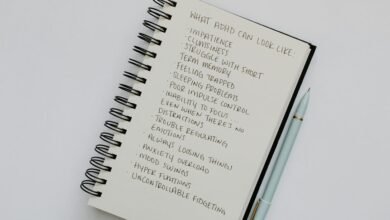 WHAT ADHD CAN LOOK LIKE:
- IMPATIENCE
- CLUMSINESS
- STRUGGLE WITH SHORT
TERM MEMORY
- FEELING TRAPPED
- SLEEPING PROBLEMS
- POOR IMPULSE CONTROL
- INABILITY TO FOCUS
EVEN WHEN THERE'S NO
DISTRACTIONS
- TROUBLE REGULATING
EMOTIONS
- ALWAYS LOSING THINGS
- ANXIETY OVERLOAD
- MOOD SWINGS
- HYPER FIXATIONS
- UNCONTROLLABLE FIDGETING